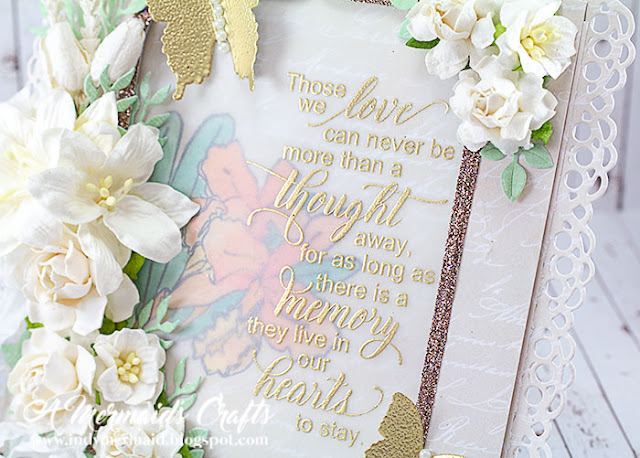 Those
we love
can never be
more than a
thought
away,
for as long as
there is a
memory
they live in
our
hearts
to stay.
A Mermaid's Crafts
www.indymermaid.blogspot.com